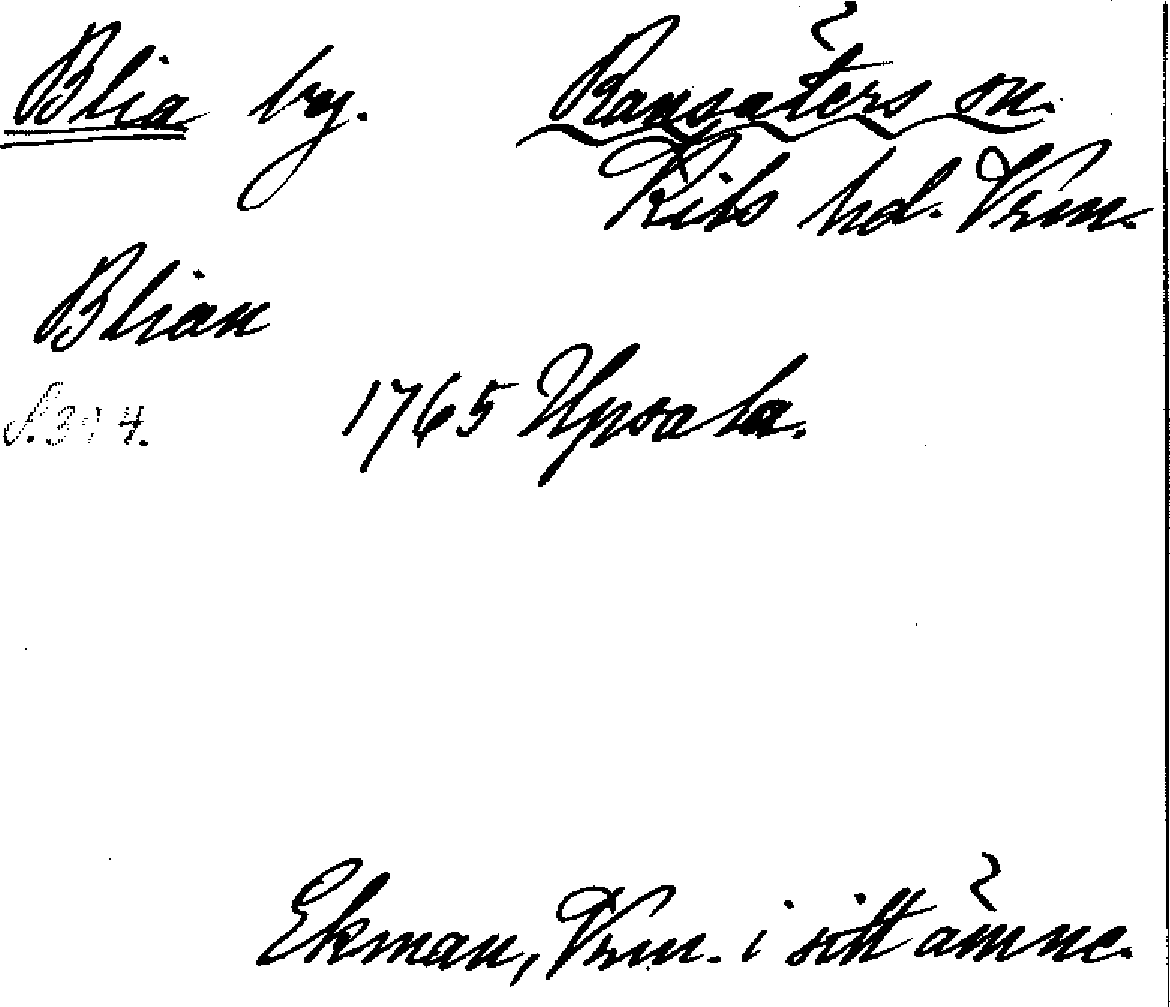 Blia by. Ransäters sn.
Kils hd. Vrm.
Blian
S. 394. 1765 Upsala.
Ekman, Vrm. i sitt ämne.